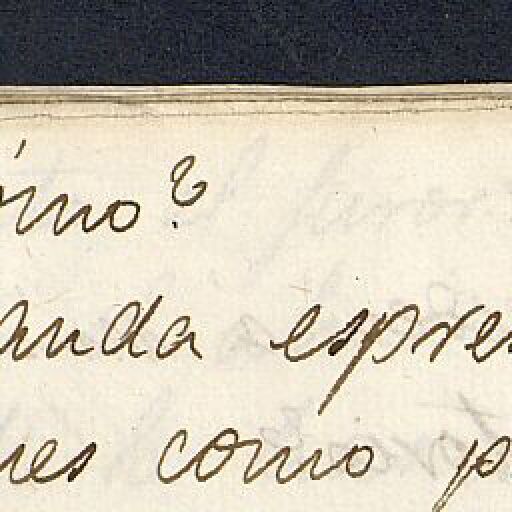 ino?
anda espres
ues como p